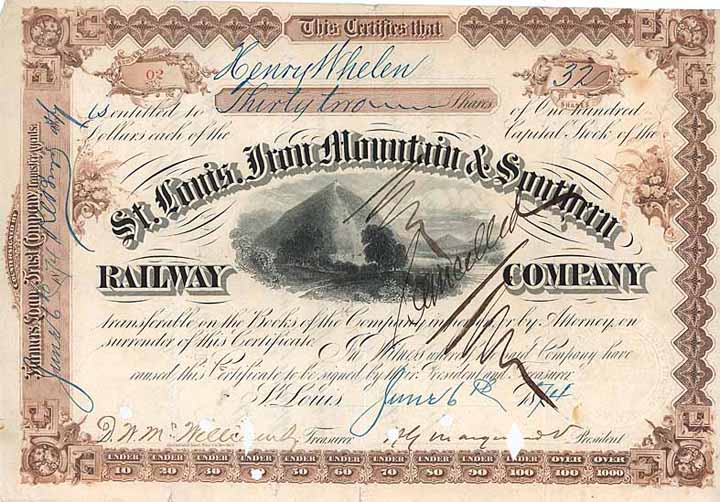 This Certifies that
02
Henry Whelen
32
SHARES
is entitled to Thirty two Shares of One Hundred
Dollars each of the Capital Stock of the
St. Louis, Iron Mountain & Southern
RAILWAY COMPANY
Cancelled
transferable on the Books of the Company in or by Attorney, on
surrender of this Certificate.
In Witness whereof, the said Company have
caused this Certificate to be signed by their President and Treasurer
St. Louis June 6th 1874
Treasurer
President
Farmers Loan & Trust Company, Transfer Agents.
June 6th 1874
UNDER 10 UNDER 20 UNDER 30 UNDER 50 UNDER 60 UNDER 70 UNDER 80 UNDER 90 UNDER 100 OVER 100 OVER 1000